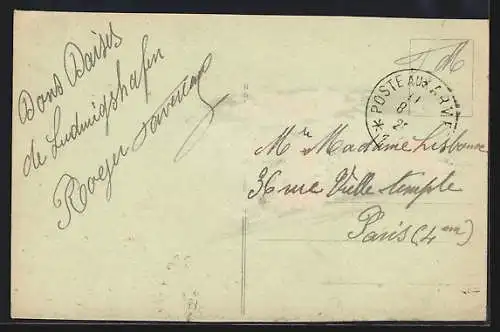 Bons Baisers
de Ludwigshafen
Roger
F M
* POSTE AUX ARMÉ
Mr Madame Lisbonne
36 rue Vieille temple
Paris (4em)